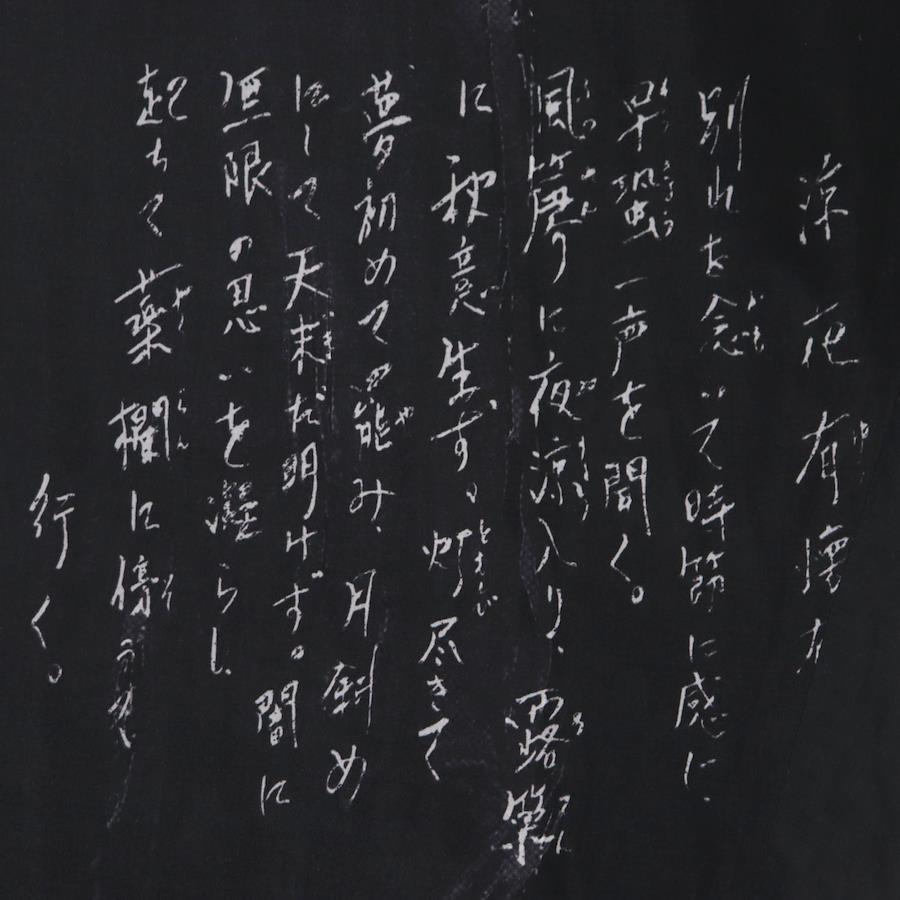 凉夜有懐
別れを念いて時節に感じ、
早蛩一声を聞く。
風簾に夜凉入り、露簟
に秋意生ず。燈尽きて
夢初めて罷み、月斜め
にして天未だ明けず。闇に
無限の思いを凝らし、
起ちて薬欄に傍うて
行く。